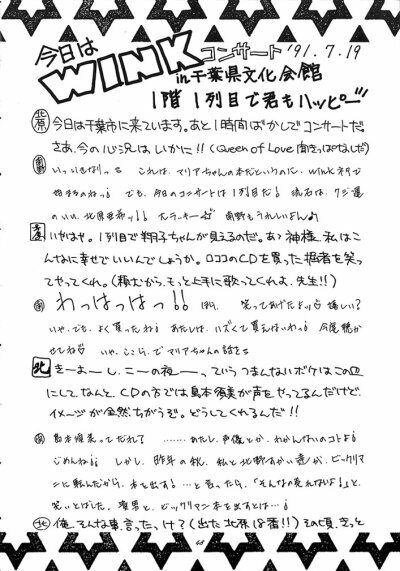 今日は WINK コンサート '91.7.19
in 千葉県文化会館
1階 1列目で君もハッピー
北原 今日は千葉市に来ています。あと1時間ばかしでコンサートだ。
さあ、今の心況はいかに!! (Queen of Love 聞きっぱなしだ)
いっいきなりっ これは、マリアちゃんの本だというのに、WINKネタで
始まるのねっ でも、今日のコンサートは1列目だ!
のいい、北原 大ラッキー 
いやはや。1列目で翔子ちゃんが見えるのだ。あゝ神様、私はこ
んなに幸せでいいんでしょうか。ロココのCDを買った拙者を笑っ
てやってくれ。(頼むから、もっと上手に歌ってくれよ、先生!!)
わっはっはっ!! 笑ってあげたよ 嬉しい?
いや、でも、よく買ったね あたしは、ハズくて買えないわっ 今度聴か
せてね いや、ここらで マリアちゃんの話を
北 きーよーしこーの夜ーっていうつまんないボケはこの皿
にして、なんと、CDの方では島本須美が声をやってるんだけど、
イメージが全然ちがうぞ。どうしてくれるんだ!!
島本須美ってだれ? ……あたし、声優とか、わかんないのコトよ
ごめんね しかし、昨年の秋、私と北野 が、ビックリマ
ンに転んだから、本を出する…と言ったら、「そんなの売れないよ!」と、
笑いとばした、貴男と、ビックリマン本を出すとは…
北 俺、そんな事、言ったっけ? (出た北原18番!!) その頃、きっと
48